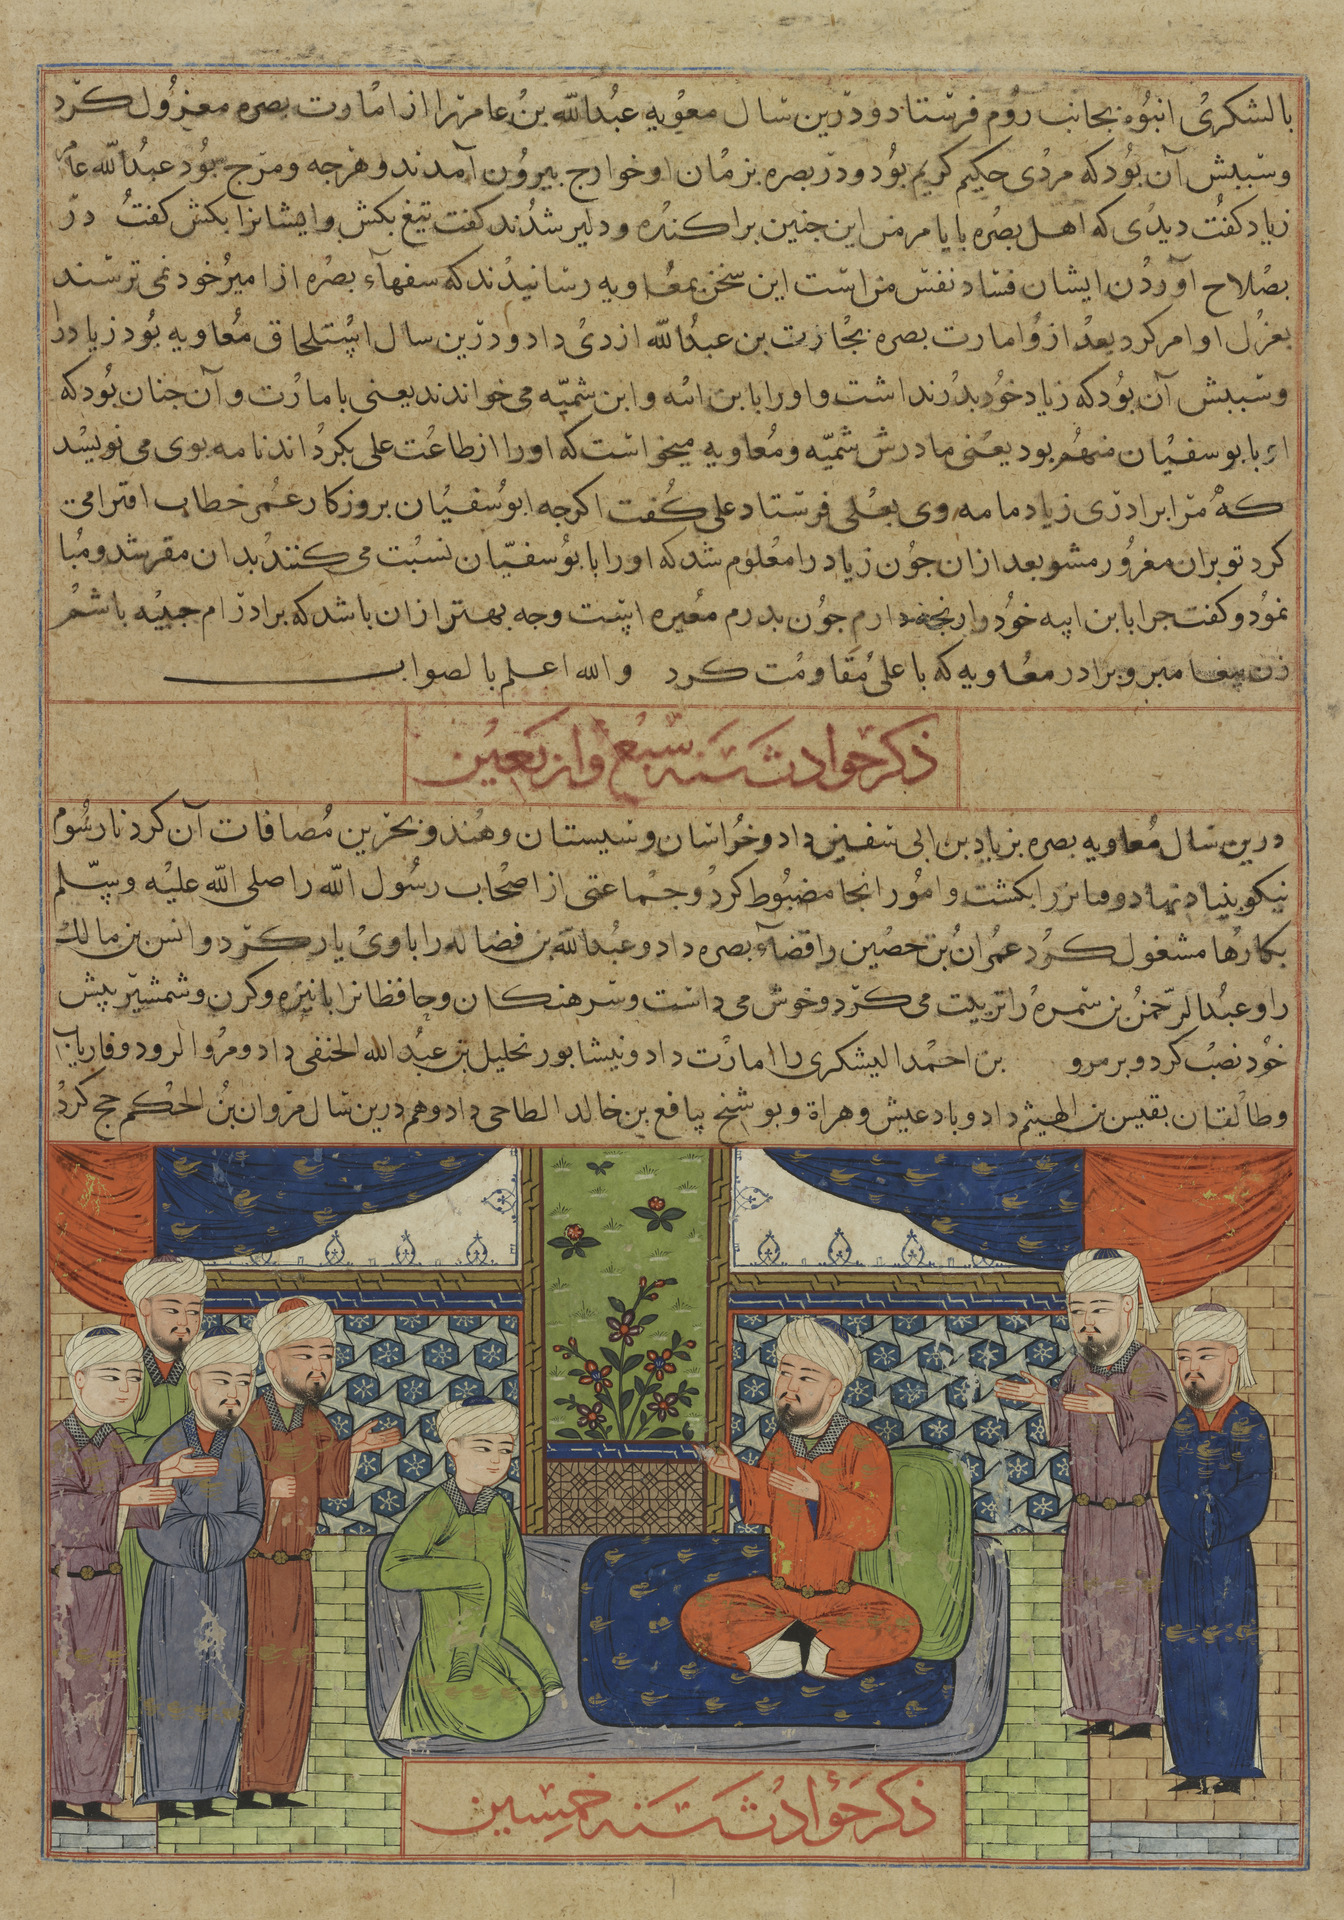 با لشکری انبوه بجانب روم فرستاد و درین سال معویه عبدالله بن عامر را از امارت بصره معزول کرد
و سببش آن بود که مردی حکیم کریم بود و در بصره بزمان او خوارج بیرون آمدند و هرجه و مرج بود عبدالله عامر
زیاد کفت دیدی که اهل بصره با یامر من این جنین براکنده و دلیر شدند کفت تیغ بکش و ایشانرا بکش کفت در
بصلاح آوردن ایشان فساد نفس من است این سخن بمعاویه رسانیدند که سفهاء بصره از امیر خود نمی ترسند
بعزل او امر کرد بعد ازو امارت بصره بجارت بن عبدالله ازدی داد و درین سال استلحاق معاویه بود زیاد را
و سببش آن بود که زیاد خود بدر نداشت و او را با بن امه و ابن سمیه می خواندند یعنی با مارت و آن جنان بود که
با بوسفیان متهم بود یعنی مادرش سمیه و معاویه میخواست که او را از طاعت علی بکرداند نامه بوی می نویسد
که مرا برادری زیاد نامه وی بعلی فرستاد علی کفت اکرجه ابوسفیان بروزکار عمر خطاب اقترامی
کرد تو بران مغرور مشو بعد ازان جون زیاد را معلوم شد که او را با بوسفیان نسبت می کنند بدان مقر شد و مبا
نمود و کفت جرا با بن ابیه خود را رنجه دارم جون بدرم معیره است وجه بهتر ازان باشد که برادر ام حبیبه باشم
زن بیغامبر و برادر معاویه که با علی مقاومت کرد والله اعلم بالصواب
ذکر حوادث سنه سبع و اربعین
درین سال معاویه بصره بزیاد بن ابی سفین داد و خراسان و سیستان و هند و بحرین مضافات آن کرد تا رسوم
نیکو بنیاد نهاد و را بکشت و امور انجا مضبوط کرد و جماعتی از اصحاب رسول الله را صلی الله علیه و سلم
بکارها مشغول کرد عمران بن حصین را قضاء بصره داد و عبدالله بن فضاله را با وی یار کرد و انس بن مالک
را و عبدالرحمن بن سمره را تربیت می کرد و خوش می داشت و سرهنکان و حافظانرا با نیزه و کرن و شمشیر بیش
خود نصب کرد و بر مرو بن احمد الیشکری را امارت داد و نیشابور نحلیل بن عبدالله الحنفی داد و مرو الرود و فاریاب
و طالقان بقیس بن الهیثم داد و بادغیش و هراة و بوشنج بنافع بن خالد الطاحی داد و هم درین سال مروان بن الحکم حج کرد
ذکر حوادث سنه خمسین